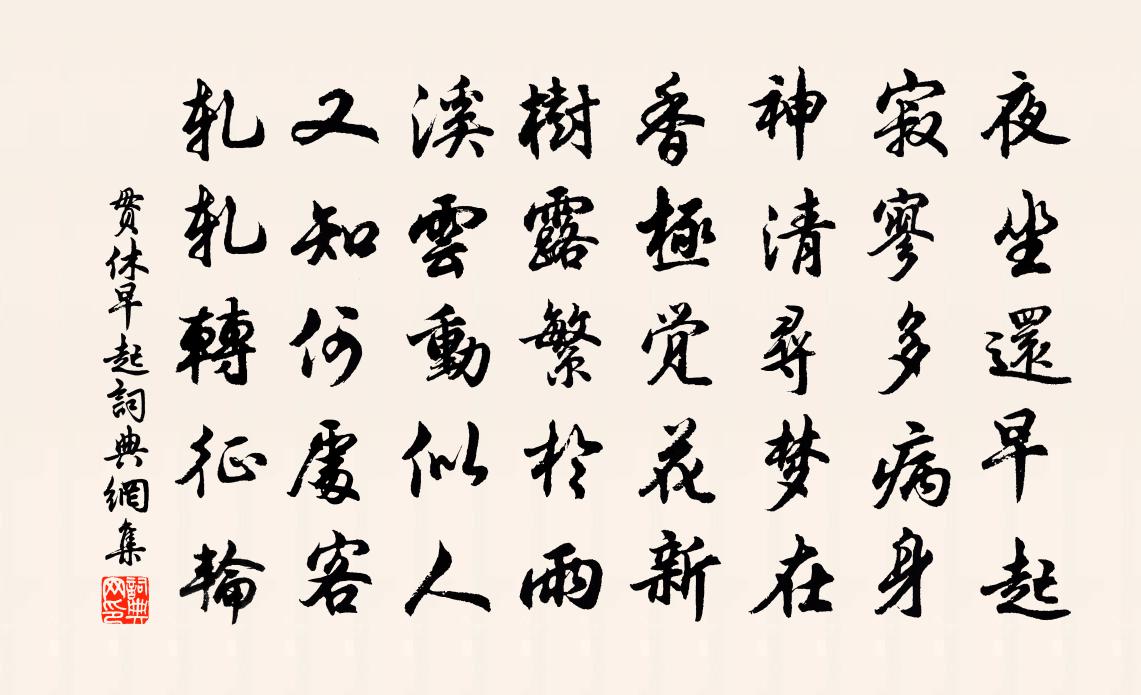 夜坐還早起
寂寥多病身
神清尋梦在
香極覚花新
樹露繁於雨
溪雲動似人
又知何處客
軋軋轉征輪
贯休早起詞典網集
詞典网印